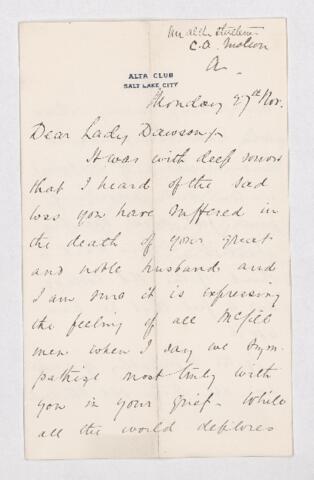 An old student
C. A. Molson
A.
ALTA CLUB
SALT LAKE CITY
Monday 27th Nov.
Dear Lady Dawson,
It was with deep sorrow
that I heard of the sad
loss you have suffered in
the death of your great
and noble husband and
I am sure it is expressing
the feeling of all McGill
men when I say we sym-
pathize most truly with
you in your grief. While
all the world deplores